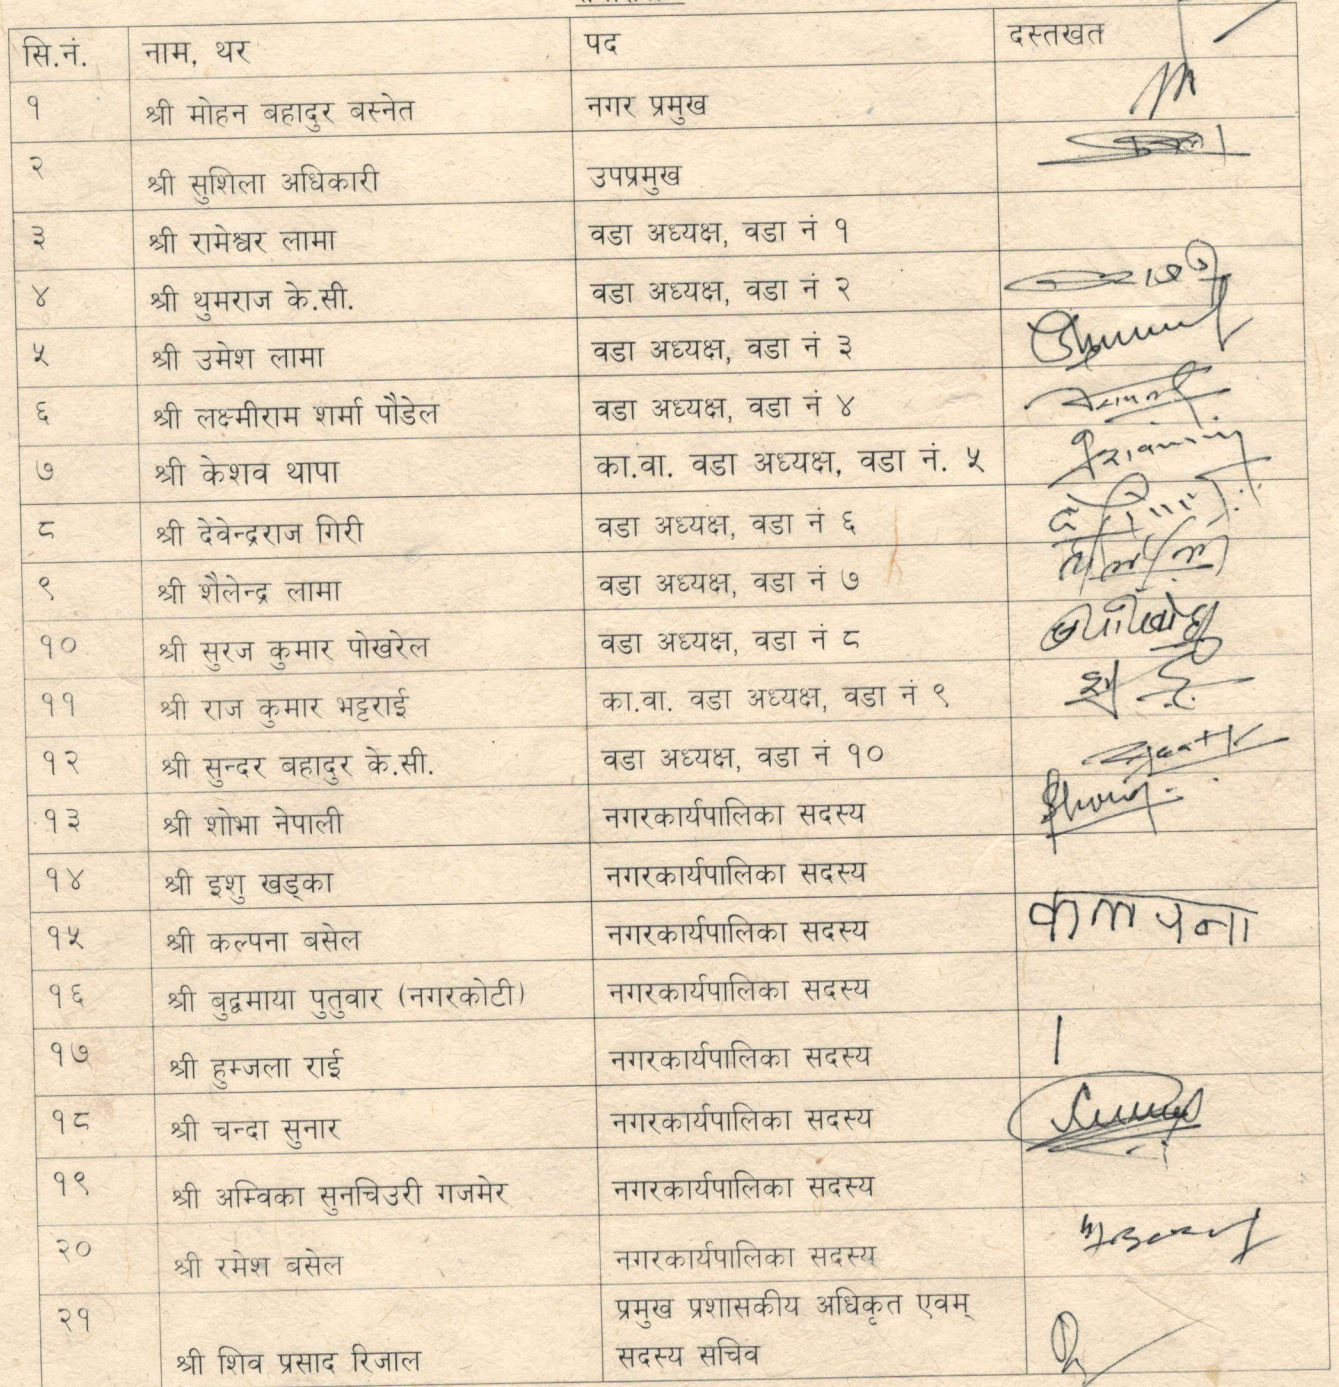 सि.नं. नाम, थर पद दस्तखत
१ श्री मोहन बहादुर बस्नेत नगर प्रमुख
२ श्री सुशिला अधिकारी उपप्रमुख
३ श्री रामेश्वर लामा वडा अध्यक्ष, वडा नं १
४ श्री थुमराज के.सी. वडा अध्यक्ष, वडा नं २
५ श्री उमेश लामा वडा अध्यक्ष, वडा नं ३
६ श्री लक्ष्मीराम शर्मा पौडेल वडा अध्यक्ष, वडा नं ४
७ श्री केशव थापा का.वा. वडा अध्यक्ष, वडा नं. ५
८ श्री देवेन्द्रराज गिरी वडा अध्यक्ष, वडा नं ६
९ श्री शैलेन्द्र लामा वडा अध्यक्ष, वडा नं ७
१० श्री सुरज कुमार पोखरेल वडा अध्यक्ष, वडा नं ८
११ श्री राज कुमार भट्टराई का.वा. वडा अध्यक्ष, वडा नं ९
१२ श्री सुन्दर बहादुर के.सी. वडा अध्यक्ष, वडा नं १०
१३ श्री शोभा नेपाली नगरकार्यपालिका सदस्य
१४ श्री इशु खड्का नगरकार्यपालिका सदस्य
१५ श्री कल्पना बसेल नगरकार्यपालिका सदस्य कल्पना
१६ श्री बुद्वमाया पुतुवार (नगरकोटी) नगरकार्यपालिका सदस्य
१७ श्री हुम्जला राई नगरकार्यपालिका सदस्य
१८ श्री चन्दा सुनार नगरकार्यपालिका सदस्य
१९ श्री अम्विका सुनचिउरी गजमेर नगरकार्यपालिका सदस्य
२० श्री रमेश बसेल नगरकार्यपालिका सदस्य
२१ श्री शिव प्रसाद रिजाल प्रमुख प्रशासकीय अधिकृत एवम्
सदस्य सचिव